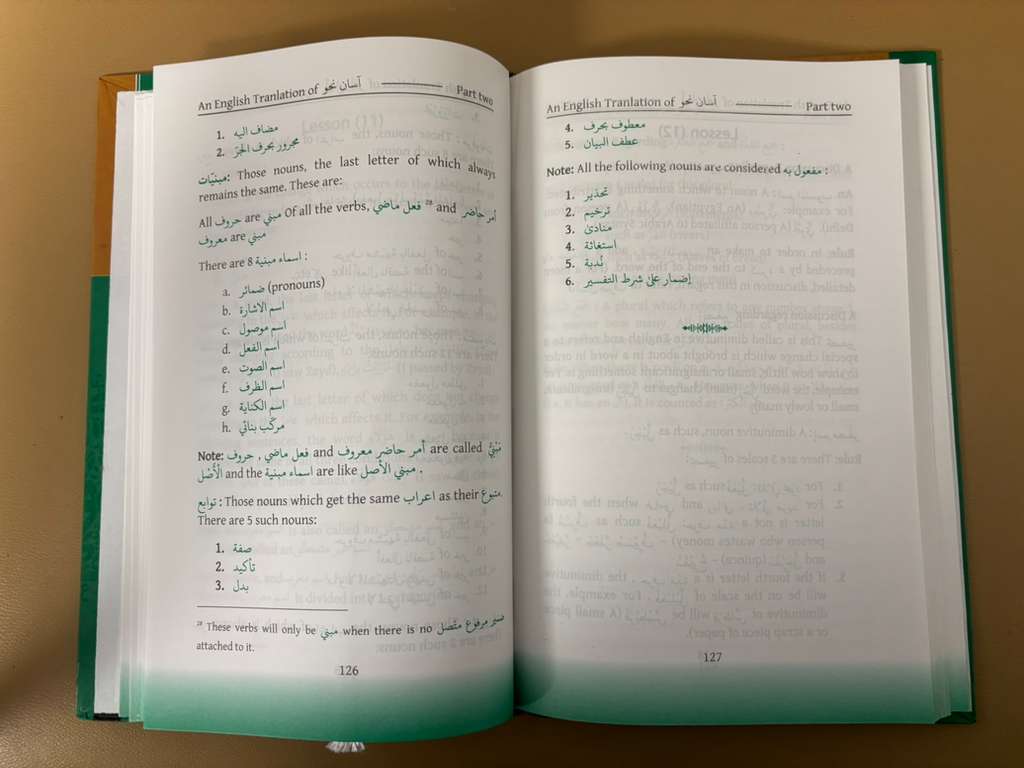 An English Tranlation of آسان نحو Part two
1. مضاف اليه
2. مجرور بحرف الجرّ
مبنيّات: Those nouns, the last letter of which always
remains the same. These are:
All حروف are مبني Of all the verbs, فعل ماضي ²⁸ and أمر حاضر
معروف are مبني
There are 8 اسماء مبنية :
a. ضمائر (pronouns)
b. اسم الاشارة
c. اسم موصول
d. اسم الفعل
e. اسم الصوت
f. اسم الظرف
g. اسم الكناية
h. مركّب بنائي
Note: حروف , فعل ماضي and أمر حاضر معروف are called مَبْنِيُّ
الْأَصْل and the اسماء مبنية are like مبني الأصل .
توابع : Those nouns which get the same اعراب as their متبوع.
There are 5 such nouns:
1. صفة
2. تأكيد
3. بدل
²⁸ These verbs will only be مبني when there is no ضمير مرفوع متّصل
attached to it.
126
An English Tranlation of آسان نحو Part two
4. معطوف بحرف
5. عطف البيان
Note: All the following nouns are considered مفعول به :
1. تحذير
2. ترخيم
3. منادىٰ
4. استغاثة
5. نُدبة
6. إضمار علىٰ شرط التفسير
127